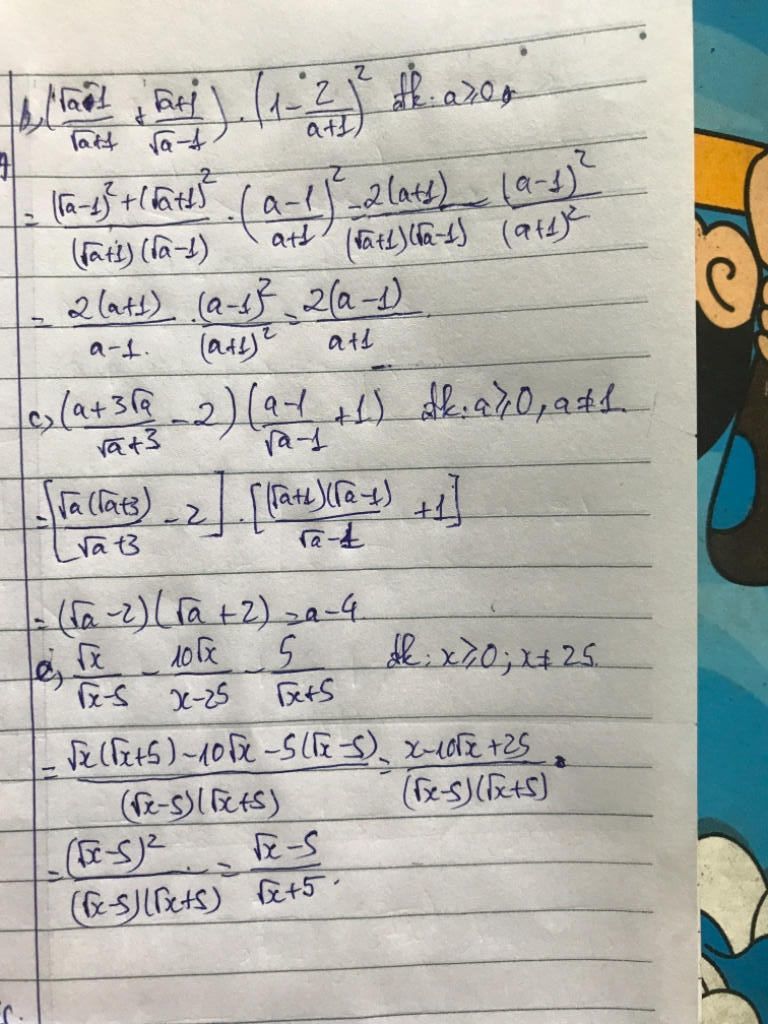 b, (√a-1/√a+1 + √a+1/√a-1) . (1 - 2/a+1)² đk: a≥0,
= (√a-1)²+(√a+1)²/(√a+1)(√a-1) . (a-1/a+1)² = 2(a+1)/(√a+1)(√a-1) (a-1)²/(a+1)²
= 2(a+1)/a-1. . (a-1)²/(a+1)² = 2(a-1)/a+1
c, (a+3√a/√a+3 - 2) (a-1/√a-1 + 1) đk: a≥0, a≠1.
= [√a(√a+3)/√a+3 - 2] . [(√a+1)(√a-1)/√a-1 + 1]
= (√a-2)(√a+2) = a-4
√x/√x-5 - 10√x/x-25 - 5/√x+5 đk: x≥0; x≠25.
= √x(√x+5)-10√x-5(√x-5)/(√x-5)(√x+5) = x-10√x+25/(√x-5)(√x+5).
= (√x-5)²/(√x-5)(√x+5) = √x-5/√x+5.